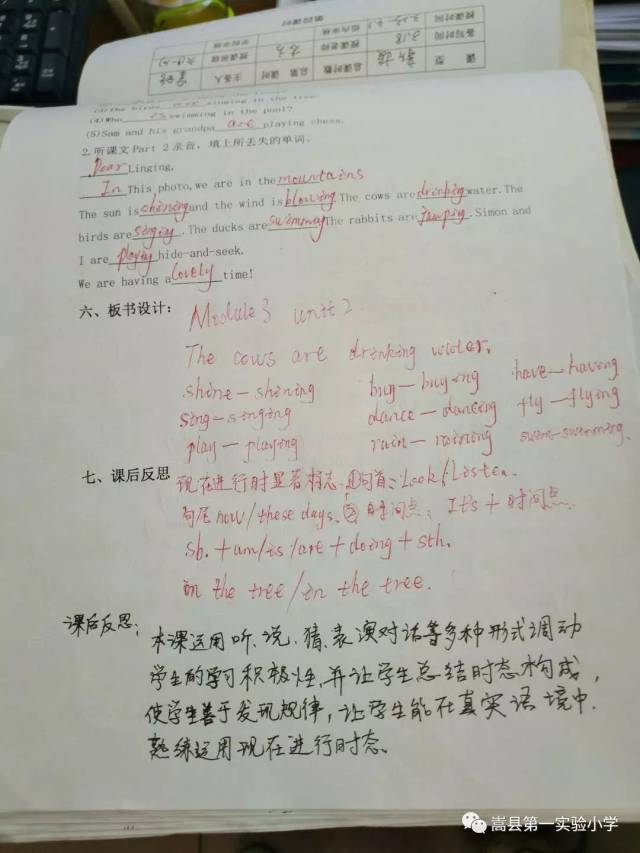 课 型
新授
总课时数
总第 课时
主备人
备写时间
3.18
授课教师
授课班级
授课时间
(4)Who is swimming in the pool?
(5)Sam and his grandpa are playing chess.
2.听课文Part 2录音，填上所丢失的单词。
Dear Lingling,
In This photo,we are in the mountains
The sun is shining and the wind is blowing.The cows are drinking water.The
birds are singing.The ducks are swimming The rabbits are jumping.Simon and
I are playing hide-and-seek.
We are having a lovely time!
六、板书设计： Module 3 unit 2
The cows are drinking water.
shine—shining buy—buying have—having
sing—singing dance—dancing fly—flying
play—playing rain—raining swim-swimming.
七、课后反思 现在进行时显著标志.①句首：Look/Listen.
句尾now/these days.②时间点：It's+时间点.
sb.+am/is/are+doing+sth.
on the tree/in the tree.
课后反思：本课运用听、说、猜、表演对话等多种形式调动
学生的学习积极性,并让学生总结时态构成，
使学生善于发现规律，让学生能在真实语境中.
熟练运用现在进行时态。
嵩县第一实验小学